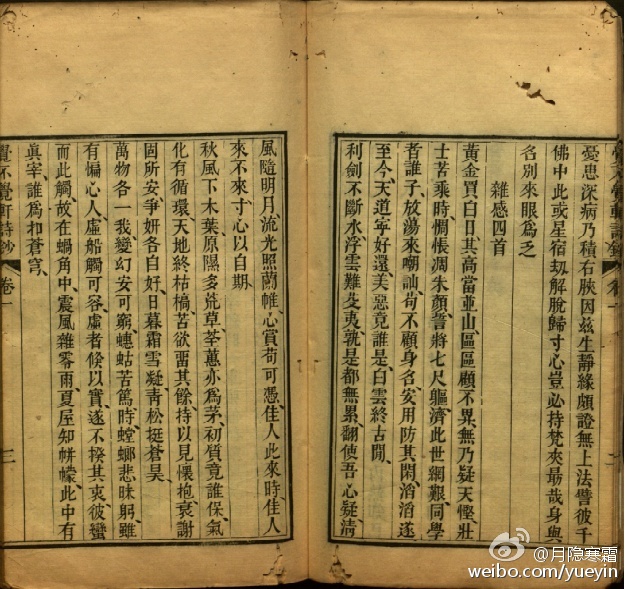 憂患深病乃積右腋因茲生靜緣頗證無上法譬彼千
佛中此或星宿劫解脫歸寸心豈必持梵夾勗哉身與
名別來眼爲乏
雜感四首
黃金買白日其高當並山區區顧不異無乃疑天慳壯
士苦乘時惆悵凋朱顏誓將七尺軀濟此世網艱同學
者誰子放蕩來嘲訕苟不顧身名安用防其閑滔滔遂
至今天道寧好還美惡竟誰是白雲終古閒
利劍不斷水浮雲難芟夷孰是都無累翻使吾心疑淸
風隨明月流光照蘭帷心賞苟可憑佳人此來時佳人
來不來寸心以自期
秋風下木葉原隰多荒草荃蕙亦爲茅初質竟誰保氣
化有循環天地終枯槁苦欲畱其餘持以見懷抱衰謝
固所安爭妍各自好日暮霜雪凝靑松挺蒼昊
萬物各一我變幻安可窮蟪蛄苦篤時螳螂悲昧躬雖
有褊心人虛船觸可容虛者倏以實遂不揆其衷彼蠻
而此觸故在蝸角中震風雜零雨夏屋知帡幪此中有
眞宰誰爲扣蒼穹
覺不覺軒詩鈔 卷一
@月隐寒霜
weibo.com/yueyin